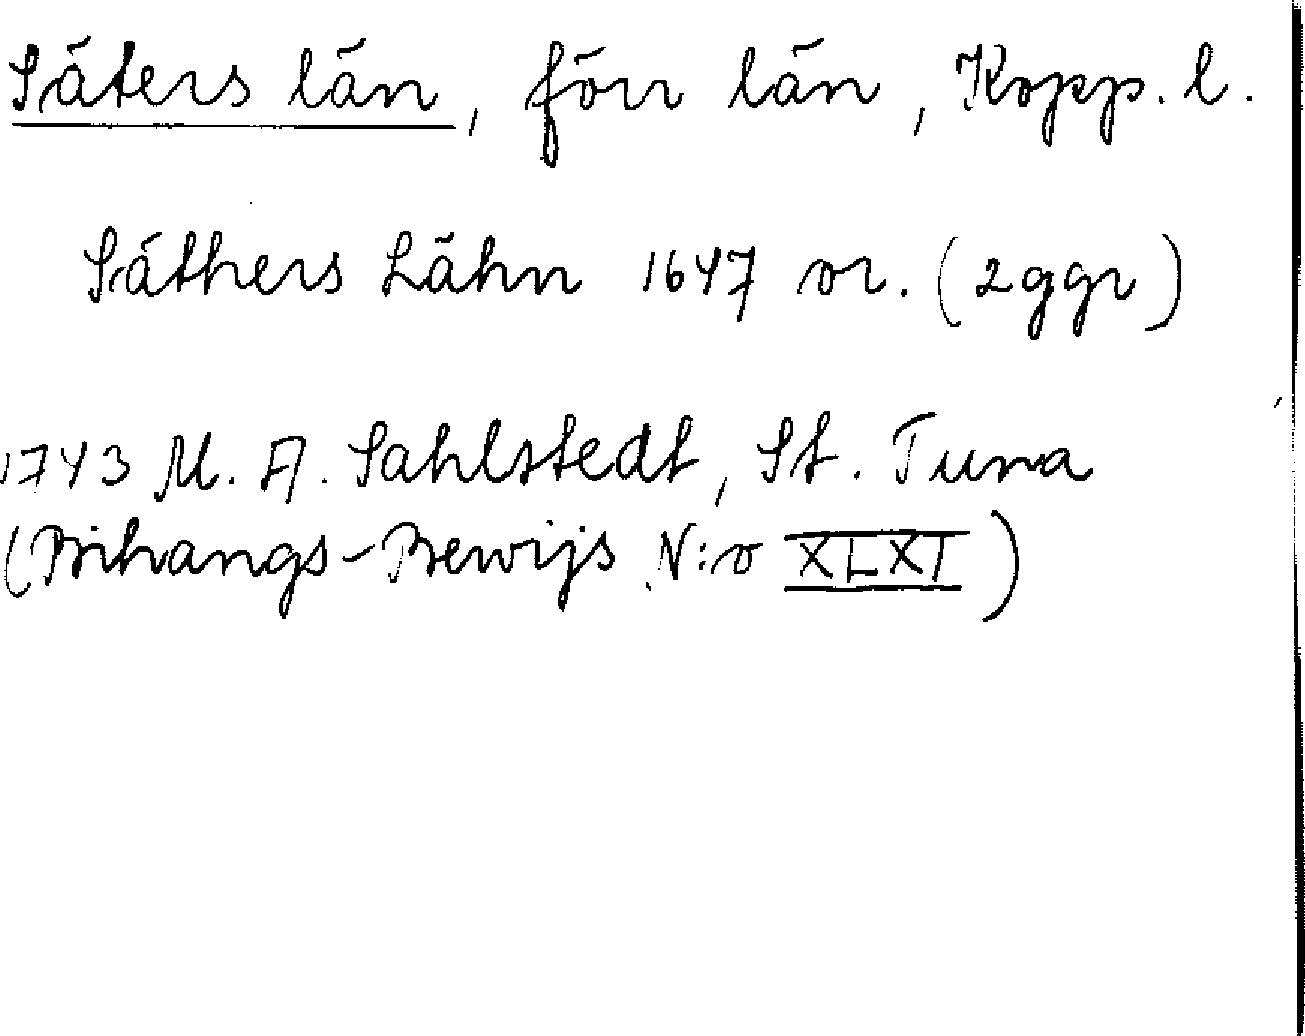 Säters län, förr län, Kopp. l.
Säthers Lähn 1647 or. (2 ggr)
1743 M. A. Sahlstedt, St. Tuna
(Bihangs-Bewijs N:o XLXI)